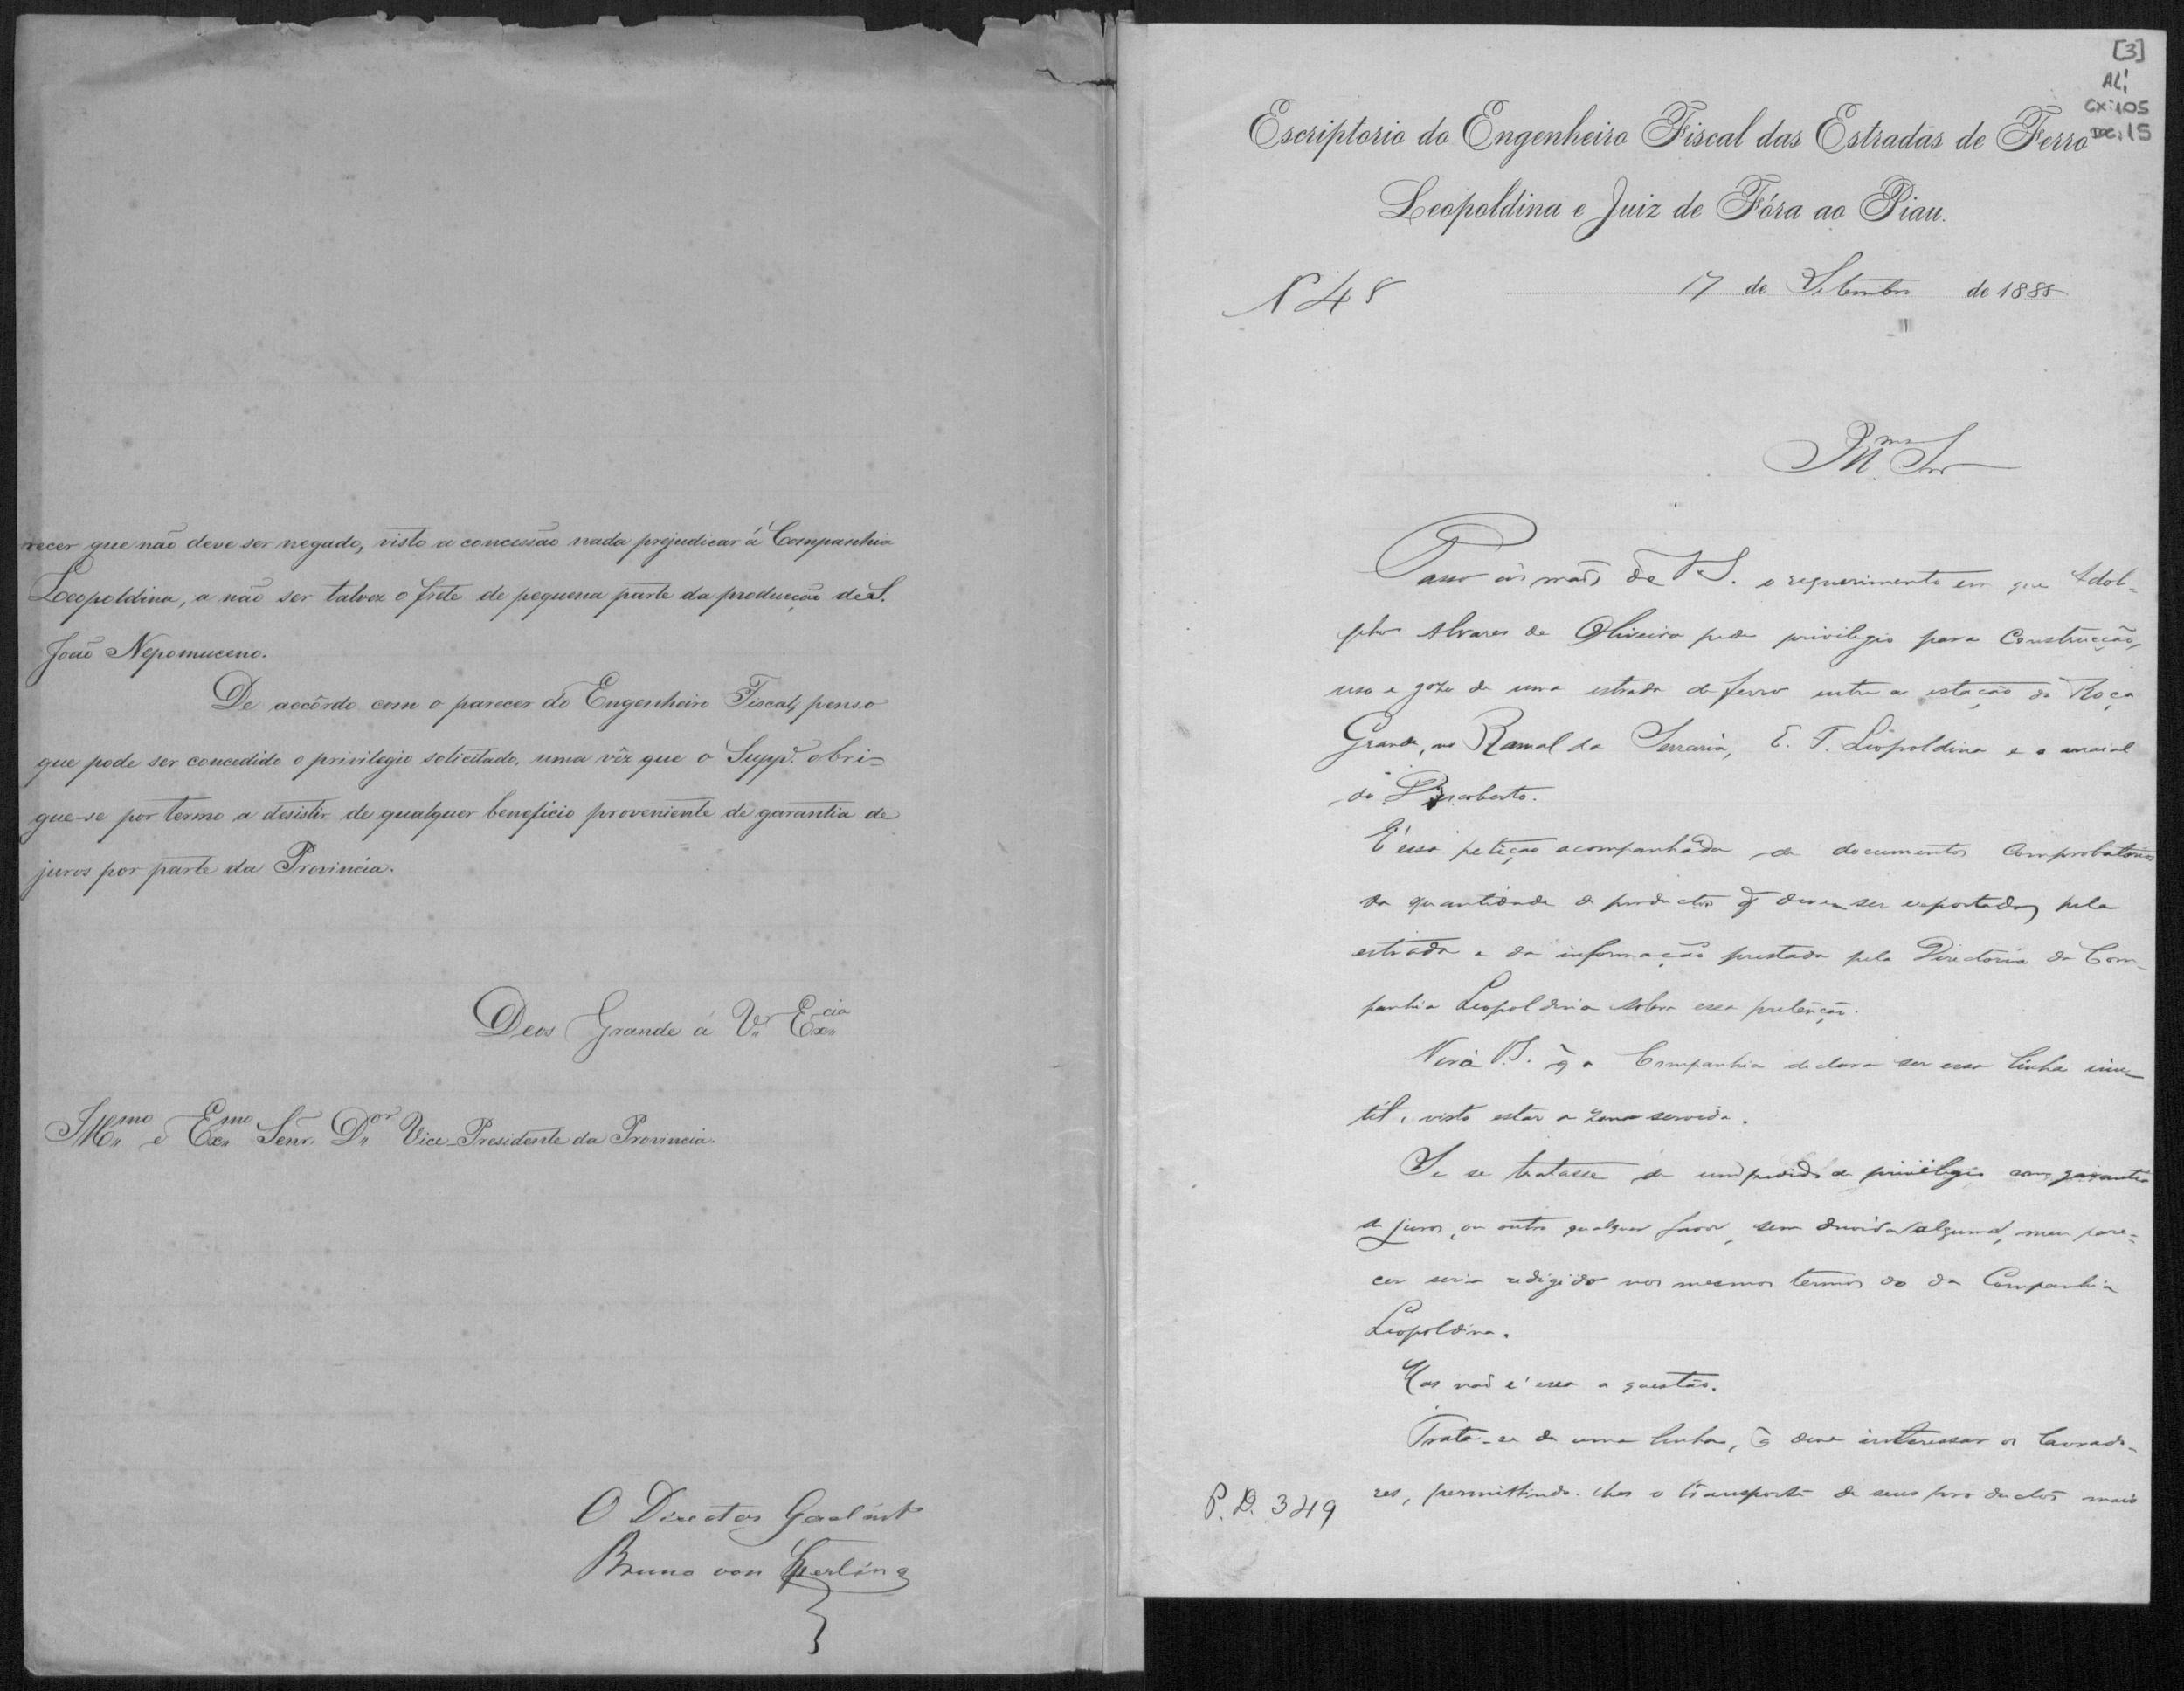 recer que não deve ser negado, visto a concessão nada prejudicar á Companhia
Leopoldina, a não ser talvez o frete de pequena parte da producção de S.
João Nepomuceno.
De accôrdo com o parecer do Engenheiro Fiscal, penso
que pode ser concedido o privilegio solicitado, uma vêz que o Supp.e obri-
gue-se por termo a desistir de qualquer beneficio proveniente de garantia de
juros por parte da Provincia.
Deos Grande á V.a Ex.cia
Ill.mo e Ex.mo Senr. D.or Vice-Presidente da Provincia.
O Director
Bruno von Sperling
[3]
AL1
CX:105
DC:15
Escriptorio do Engenheiro Fiscal das Estradas de Ferro
Leopoldina e Juiz de Fóra ao Piau.
N 48 17 de Setembro de 1885
Ill.mo Snr
Passo ás mãos de V.S. o requerimento em que Adol-
pho Alvares de Oliveira pede privilegio para Construcção,
uso e gozo de uma estrada de ferro entre a estação da Roça
Grande, no Ramal da Serraria, E. F. Leopoldina e o arraial
do Descoberto.
É essa petição acompanhada de documentos comprobatorios
da quantidade de productos q̃ devem ser exportados pela
estrada e da informação prestada pela Directoria da Com-
panhia Leopoldina sobre essa pretenção.
Verá V.S. q̃ a Companhia declara ser essa linha inu-
til, visto estar a zona servida.
Se se tratasse de um pedido de privilegio com garantia
de juros, ou outro qualquer favor, sem duvida alguma, meu pare-
cer seria redigido nos mesmos termos do da Companhia
Leopoldina.
Mas não é essa a questão.
Trata-se de uma linha, q̃ deve interessar os lavrado-
res, permittindo-lhes o transporte de seus productos mais
P. D. 349